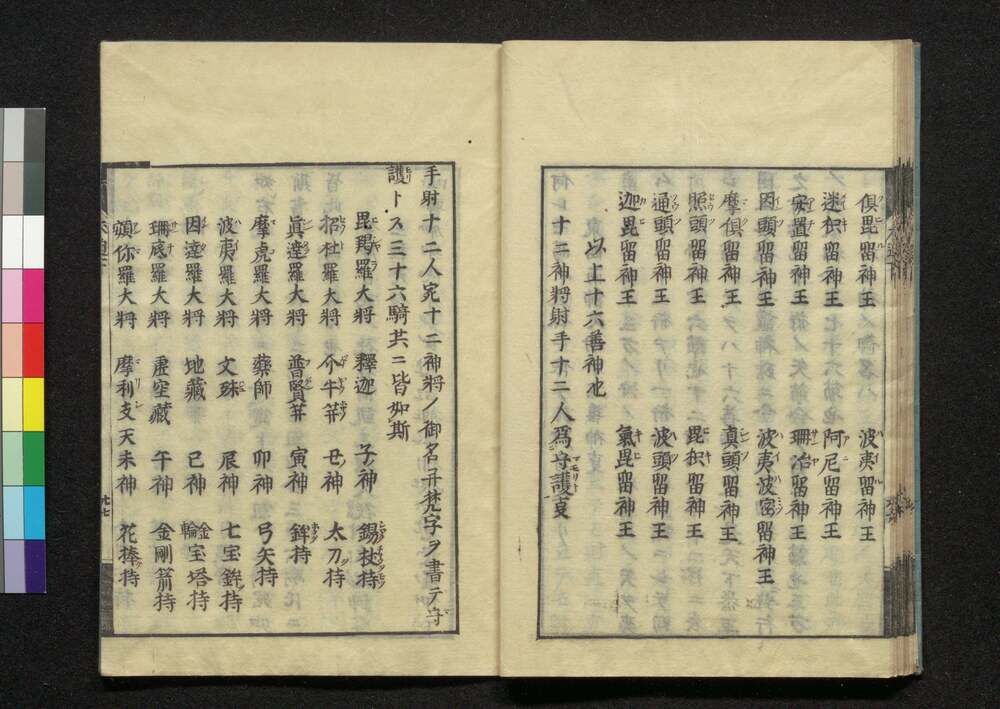 倶毘留神王　波夷留神王
迷积留神王　阿尼留神王
安置留神王　珊冶留神王
因頭留神王　波夷波宻留神王
摩倶留神王　真頭留神王
照頭留神王　毘积留神王
通頭留神王　波頭留神王
迦毘留神王　氣毘留神王
以上十六善神也
十二神將射手十二人爲守護支
手射十二人宛十二神將ノ御名并梵字ヲ書テ守
護トス三十六騎共ニ皆如斯
毘羯羅大將　釋迦　子神　錫杖持
招杜羅大將　个牛䒑　丑神　太刀持
眞達羅大將　普賢䒑　寅神　鉾持
摩虎羅大將　藥師　卯神　弓矢持
波夷羅大將　文殊　辰神　七宝鉾持
因達羅大將　地藏　巳神　金輪宝塔持
珊底羅大將　虚空藏　午神　金剛箭持
頞你羅大將　摩利支天　未神　花捧持
九七